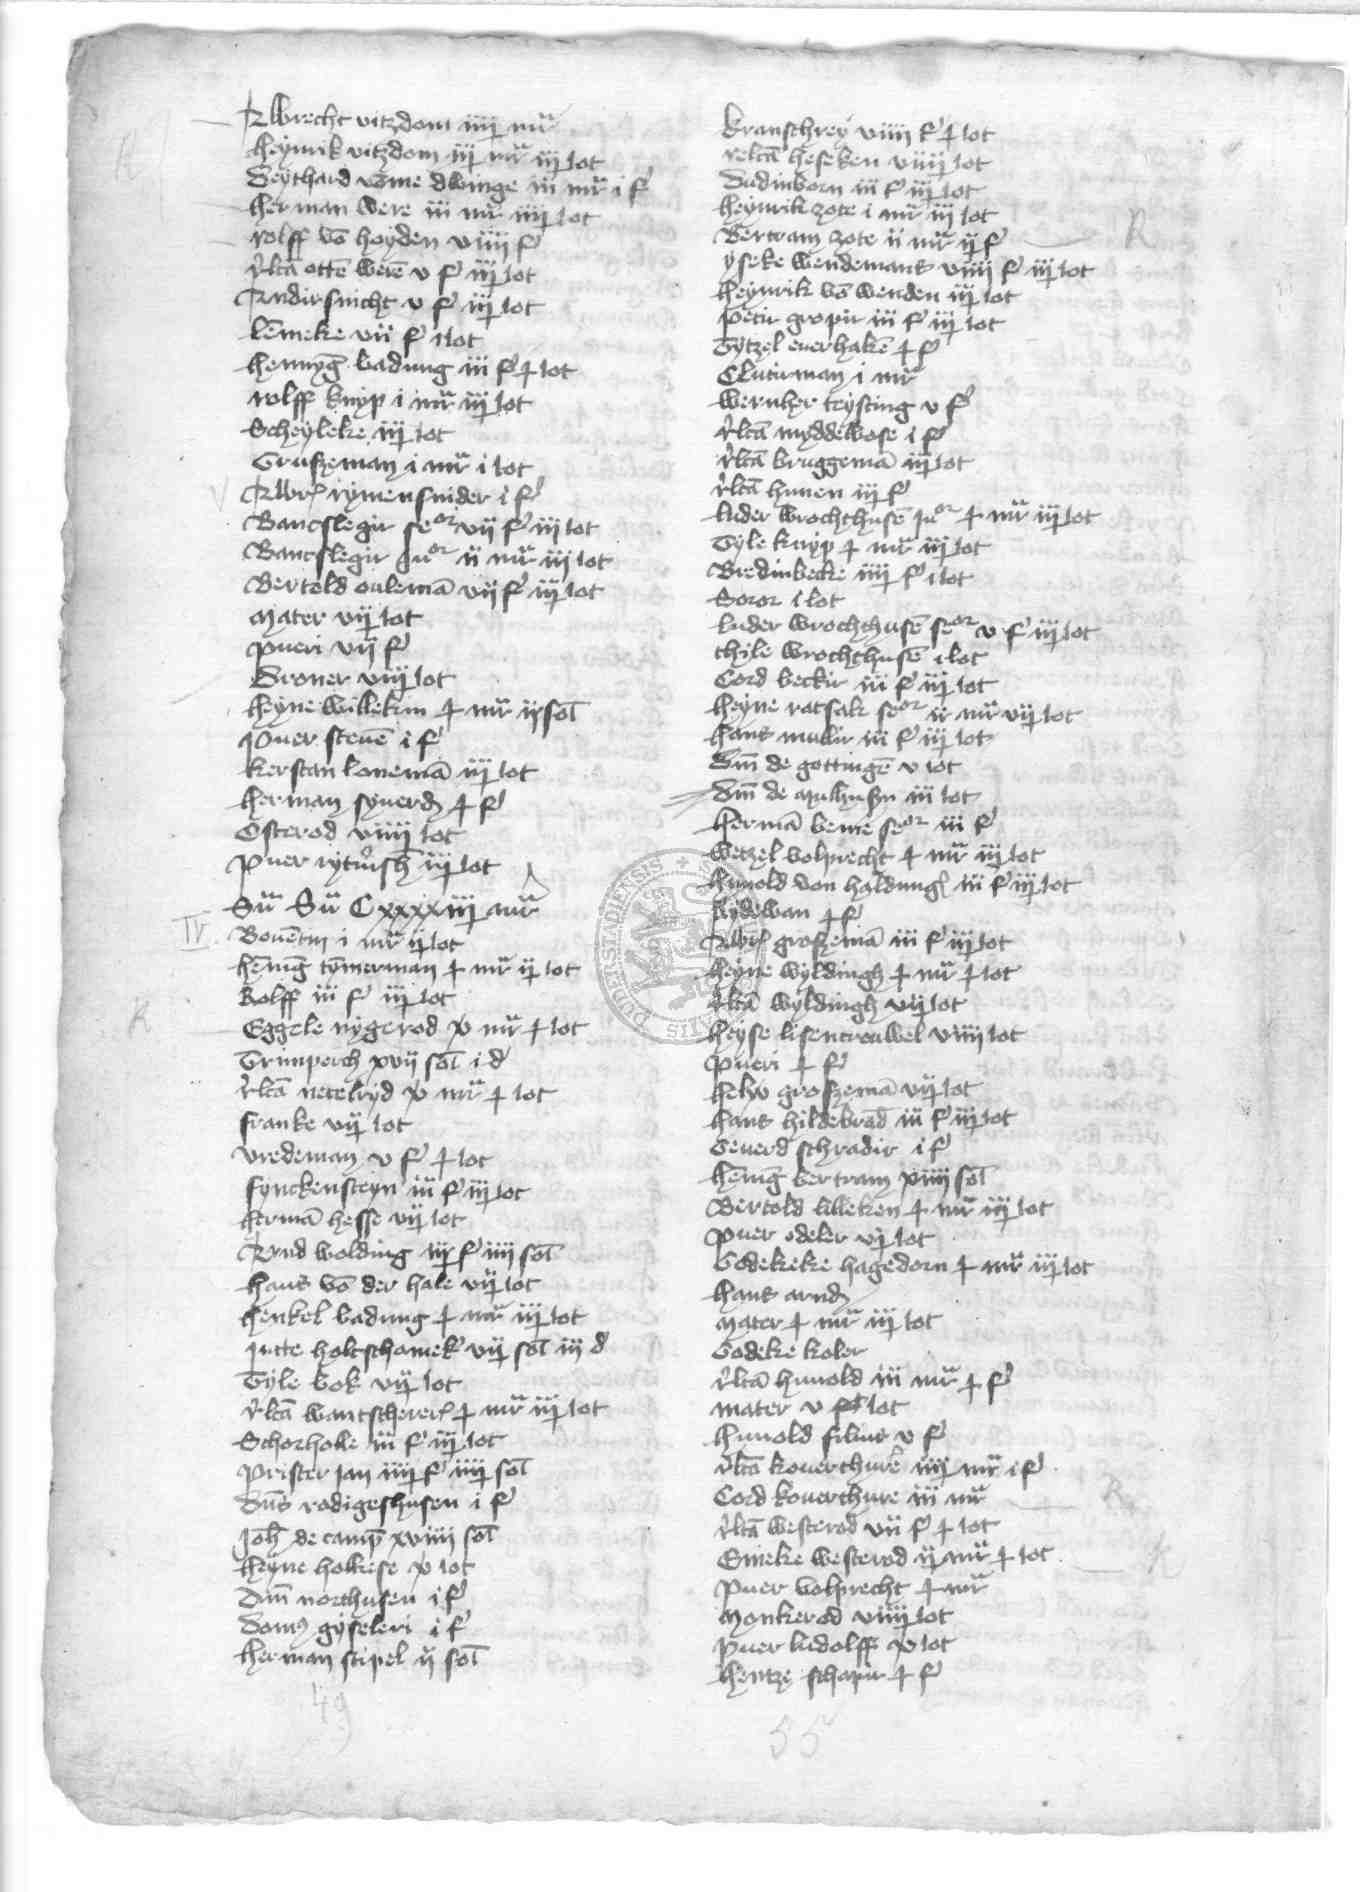 Albrecht vitzdom iiij mr
heynrik vitzdom iij mr iij lot
Seythard vome dwinge iii mr i f
herman were iii mr iiij lot
rolff vō hoyden viiii f
rlcā ottē werē v f iij lot
Andirsnicht v f iij lot
lēmeke vii f i lot
hennyg badung iii f ɟ lot
rolff knyp i mr iij lot
Scheyleke iij lot
Gruszeman i mr i lot
Albr rymensnider i f
Bantslegir seor vii f iij lot
Bantslegir juor ii mr iij lot
Bertold oulemā vij f iij lot
mater vij lot
pueri vii f
Droner viij lot
heyne willekin ɟ mr ij sol
puer steuē i f
kerstan lonemā iij lot
herman syuerd ɟ f
Osterod viiij lot
puer iij lot
Sū Sū C xxxxiiij mr
IV
i mr ij lot
hēnig tōmerman ɟ mr ij lot
Rolff iii f iij lot
Eggele nygerod mr ɟ lot
Grimperch xvij sol i d
rlcā netelryd mr ɟ lot
franke vij lot
vredeman v f ɟ lot
fynckensteyn iii f iij lot
hermā hesse vij lot
Arnd wolding iij f iiij sol
hans vō der hale vij lot
henkel badung ɟ mr iij lot
Jutte holtschomek vij sol iij d
Tyle bok vij lot
rlcā wantscherer ɟ mr iij lot
Schorholle iii f iij lot
prister jan iiij f iiij sol
Dūs rodigeshusen i f
Joh de camp xviiij sol
heyne holkese lot
Dm northusen i f
Dom gyseleri i f
herman stipel ij sol
49
kranschrey viiii f ɟ lot
relcā heseken viiij lot
Sudinborn iii f iij lot
heynrik zote i mr iij lot
Bertram zote ii mr ij f
yseke wendemans viiij f iij lot
heynrik vō wenden iij lot
petir gropir iii f iij lot
Tytzel euerhakē ɟ f
Clutirman i mr
wernher teysting v f
rlcā myddewose i f
rlcā bruggemā iij lot
rlcā hunen iij f
luder wrochthusē juor ɟ mr iij lot
Tyle knyp ɟ mr iij lot
Bredinbecke iiij f i lot
Soror i lot
luder wrochthusē seor v f iij lot
thyle wrochthusē i lot
Cord beckir iii f iij lot
heyne ratsak seor ii mr vij lot
hans mullir iii f iij lot
Dm de gottingē v lot
Dm de mulhusn iii lot
hermā beme seor iii f
wetzel volprecht ɟ mr iij lot
hunold von haldung iii f iij lot
Rydewan ɟ f
Albr groszemā iii f iij lot
heyne wyldingh ɟ mr ɟ lot
rlcā wyldingh vij lot
heyse lisentrouwel viiij lot
pueri ɟ f
helw groszemā vij lot
hans hildebrad iii f iij lot
Geuerd schradir i f
hēnig bertram xiiij sol
Bertold lilleken ɟ mr iij lot
puer odeler vj lot
Godekeke hagedorn ɟ mr iij lot
hans arnd
mater ɟ mr iij lot
Godeke koler
rlcā hunold iii mr ɟ f
mater v lot
hunold filius v f
rlcā kouerthure iiij mr i f
Cord kouerthure iii mr
rlcā westerod vii f ɟ lot
Emeke westerod ij mr ɟ lot
puer volprecht ɟ mr
monkerod viiij lot
puer ludolff lot
hentze schapir ɟ f
55